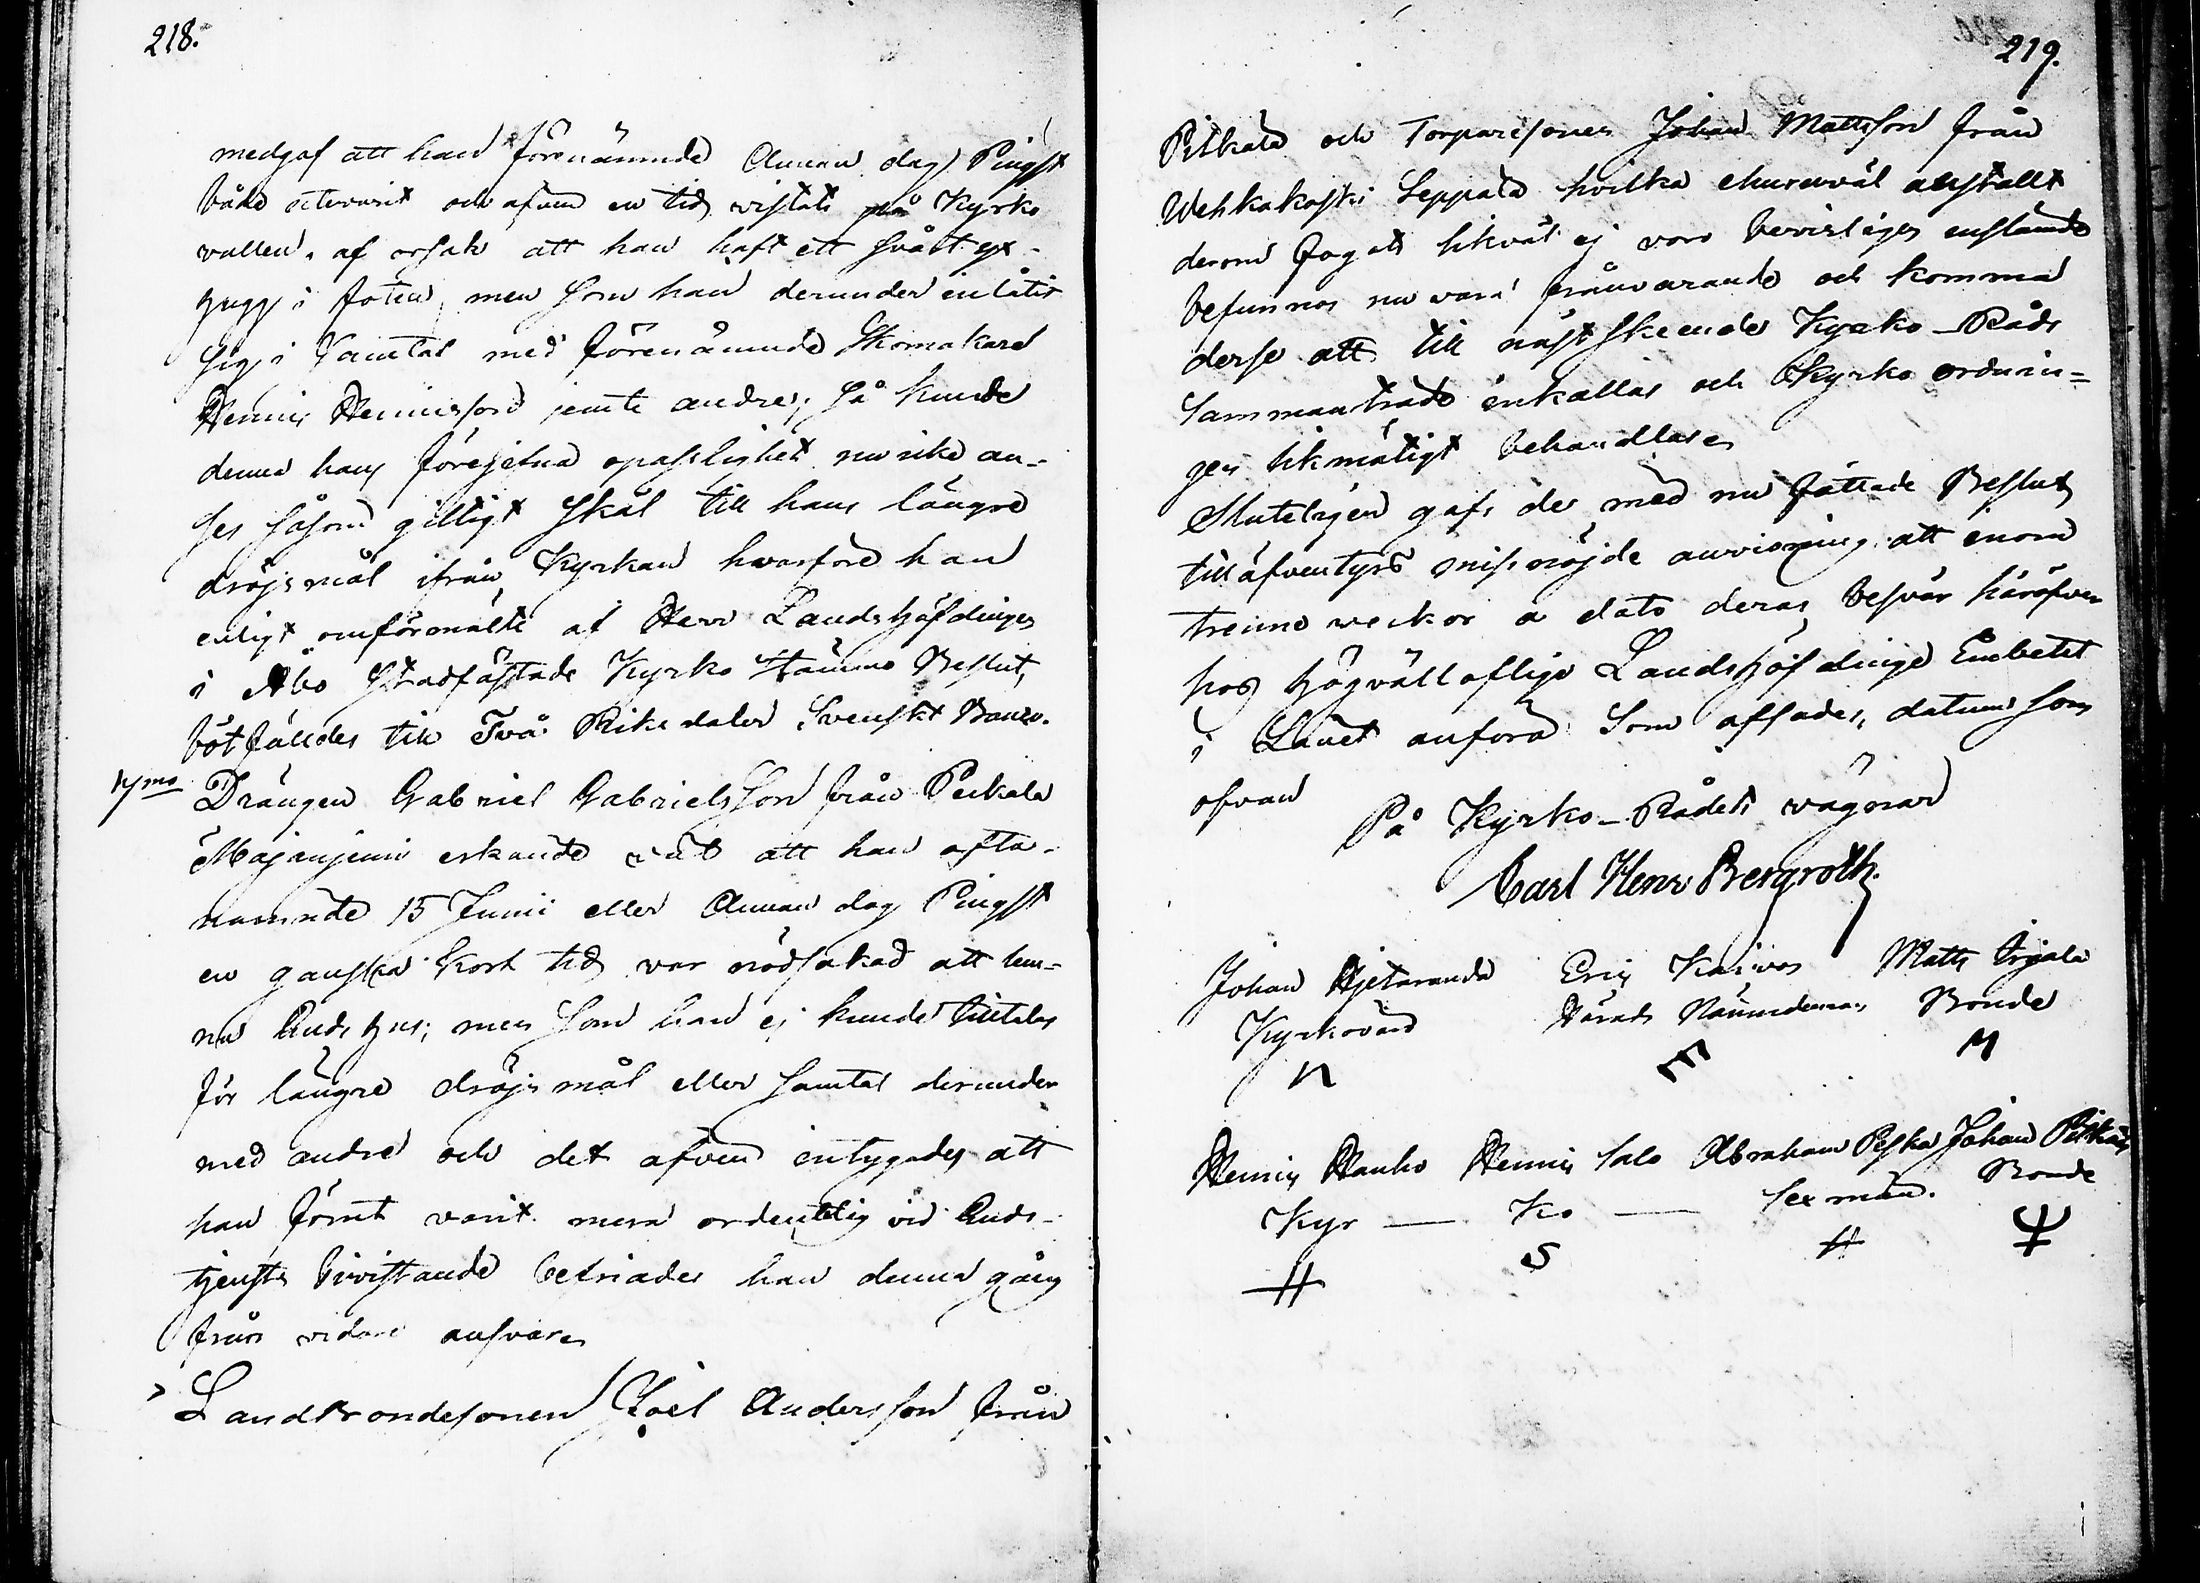 218.
medgaf att han förenämnde Annan dag Pingst
både utevarit och äfven en tid vistats på Kyrko
vallen, af orsak att han haft ett svårt yx-
hugg i foten, men som han derunder inlåtit
sig i samtal med förenämnde Skomakare
Hennic Hennicsson jemte andre; så kunde
denna hans föregifna opasslighet nu icke an-
ses såsom gilltigt skäl till hans längre
dröjsmål ifrån Kyrkan hvarföre han
enligt omförmälte af Herr Landshöfdingen
i Åbo Stadfästade Kyrko Stämno Beslut,
bötfäldes till Två Riksdaler Svenskt Banco.
4mo Drängen Gabriel Gabrielsson från Peikala
Majanjemi erkände väl att han ofta-
nämnde 15 Junii eller Annan dag Pingst
en ganska kort tid var nödsakad att lem-
na Gudshus; men som han ej kunde tilltalas
för längre dröjsmål eller samtal derunder
med andre och det äfven intygades att
han förut varit mera ordentelig vid Guds-
tjensts bivistande befriades han denna gång
från vidare ansvar.
Landbondesonen Joel Andersson från
219.
Pitkälä och Torparesonen Johan Mattsson från
Wehkakoski Seppälä hvilka ehuruväl anstallt
derom fogats likväl ej voro bevisligen instämde
befunnos nu vara frånvarande och komma
derfö att till nästskeende Kyrko-Råds
sammanträde inkallas och Kyrko ordnin=
gen likmätigt behandlas.
Slutel:gen gafs de med nu fattade Beslut
till äfventyrs missnöjde anvisning att inom
trenne veckor a dato deras besvär häröfver
hos högvällofliga Landshöfdinge Embetet
i Länet anföra Som afsades, datum som
ofvan
På Kyrko-Rådets vägnar
Carl Henr Bergroth.
Johan Hjetaranda Eric Kaivos Matts Irjala
Kyrkovärd Härads Nämndeman Bonde
N E M
Hennic Hanho Hennic Salo Abraham Peska Johan Pitkälä
Kyr — Ko — Sexmän. Bonde
H S H